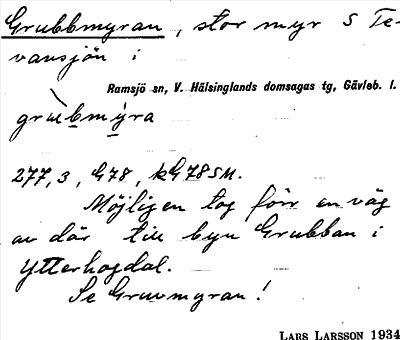 Grubbmyran, stor myr S Te-
vansjön i
Ramsjö sn, V. Hälsinglands domsagas tg, Gävleb. l.
grùbmýra
277,3, G78, kG78SM.
Möjligen tog förr en väg
av där till byn Grubban i
Ytterhogdal.
Se Gruvmyran!
LARS LARSSON 1934